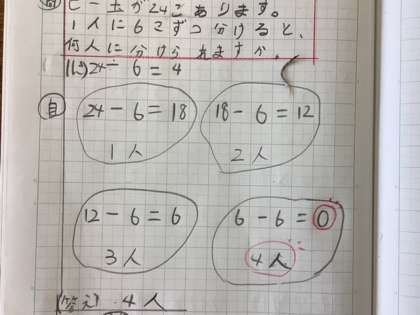 問
ビー玉が24こあります。
1人に6こずつ分けると、
何人に分けられますか。
(しき)24÷6=4
自
24-6=18 18-6=12
1人 2人
12-6=6 6-6=0
3人 4人
(答え) 4人